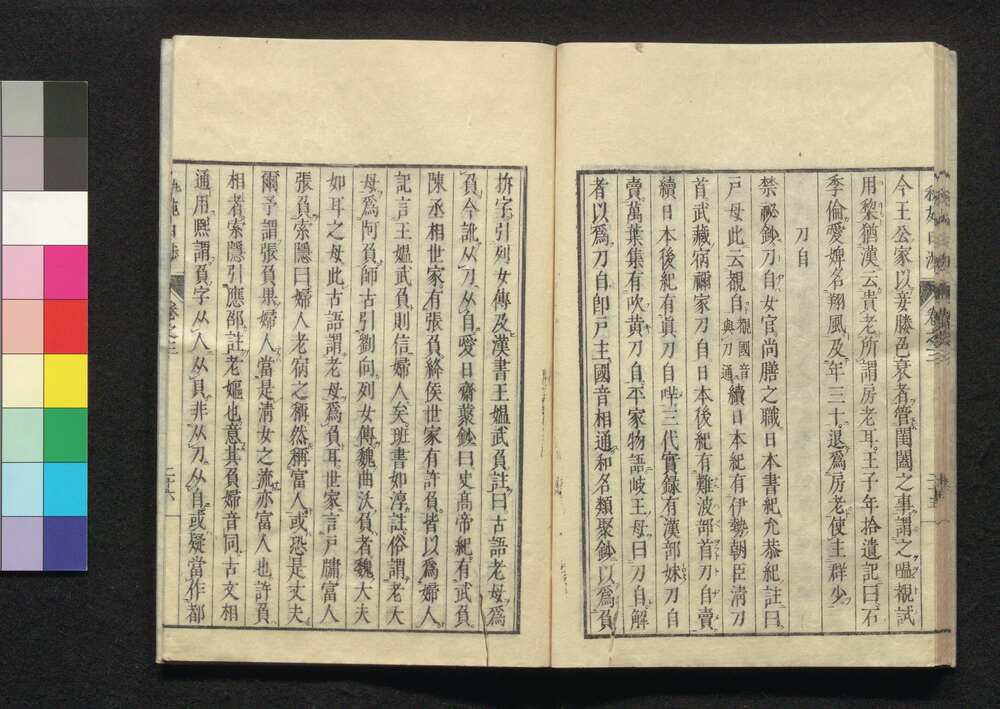 今王公家以妾媵邑衰者管閨閤之事謂之嗢覩試
用黎猶漢云貴老所謂房老耳王子年拾遺記曰石
季倫愛婢名翔風及年三十退爲房老使主群少
刀自
禁祕鈔刀自女官尚膳之職日本書紀允恭紀註曰
戸母此云覩自覩國音與刀通續日本紀有伊勢朝臣清刀
首武藏病禰家刀自日本後紀有難波部首刀自賣
續日本後紀有眞刀自咩三代實録有漢部妹刀自
賣萬葉集有吹黄刀自平家物語岐王母曰刀自解
者以爲刀自卽戸主國音相通和名類聚鈔以爲負
卷之三
二十五
拚字引列女傳及漢書王媼武負註曰古語老母爲
負今訛从刀从自愛日齋藂鈔曰史高帝紀有武負
陳丞相世家有張負絳侯世家有許負皆以爲婦人
記言王媼武負則信婦人矣班書如淳註俗謂老大
母爲阿負師古引劉向列女傳魏曲沃負者魏大夫
如耳之母此古語謂老母爲負耳世家言戸牖富人
張負索隱曰婦人老宿之稱然稱富人或恐是丈夫
爾予謂張負果婦人當是清女之流亦富人也許負
相者索隱引應邵註老嫗也意其負婦音同古文相
通用熈謂負字从人从貝非从刀从自或疑當作都
卷之三
二十六